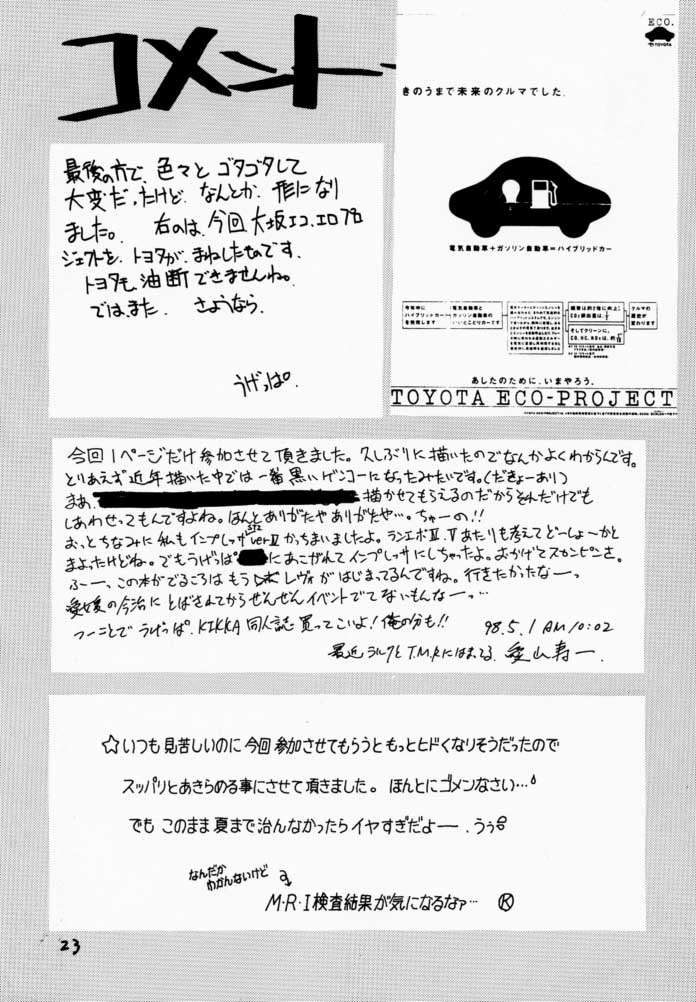 コメント
最後の方で、色々と ゴタゴタして
大変だったけど、なんとか、形になり
ました。 右のは、今回 大坂エコ、エロプロ
ジェクトを、トヨタが、まねしたものです。
トヨタも、油断できませんね。
では、また、 さようなら。
うげっぱ。
ECO.
TOYOTA
きのうまで未来のクルマでした。
電気自動車+ガソリン自動車=ハイブリッドカー
今年中に
ハイブリッドカー
を発売します
電気自動車と
ガソリン自動車の
いいとこどりカーです
燃費は約2倍に向上、
CO2排出量は、1/2
そしてクリーンに。
CO、HC、NOxは、約1/10
クルマの
歴史が
変わります
あしたのために、いまやろう。
TOYOTA ECO-PROJECT
今回1ページだけ参加させて頂きました。久しぶりに描いたのでなんかよくわからんです。
とりあえず近年描いた中では一番黒いゲンコーになったみたいです。(だきょーあり)
まあ、 描かせてもらえるのだからそれだけでも
しあわせってもんですよね。ほんとありがたやありがたや…。ちゅーの!!
おっとちなみに私もインプレッサSTi verⅣかっちまいましたよ。ランエボⅣ.Ⅴあたりも考えてどーしょーかと
まよったけどね。でもうげっぱ にあこがれてインプレッサにしちゃったよ。おかげでスカンピンさ。
ふー、この本がでるころは もう レヴォがはじまってるんですね。行きたかったなーっ
愛媛の今治に とばされてからぜんぜんイベントでてないもんなーっ…
つーことで うげっぱ、KIKKA 同人誌 買ってこいよ!俺の分も!! 98.5.1 AM10:02
最近ラルクとT.M.Rにはまってる 寿一
☆いつも見苦しいのに今回参加させてもらうともっとヒドくなりそうだったので
スッパリとあきらめる事にさせて頂きました。ほんとにゴメンなさい…
でも このまま夏まで治んなかったらイヤすぎだよー。うぅ
なんだか
わかんないけど
M・R・I検査結果が気になるなァ… Ⓚ
23